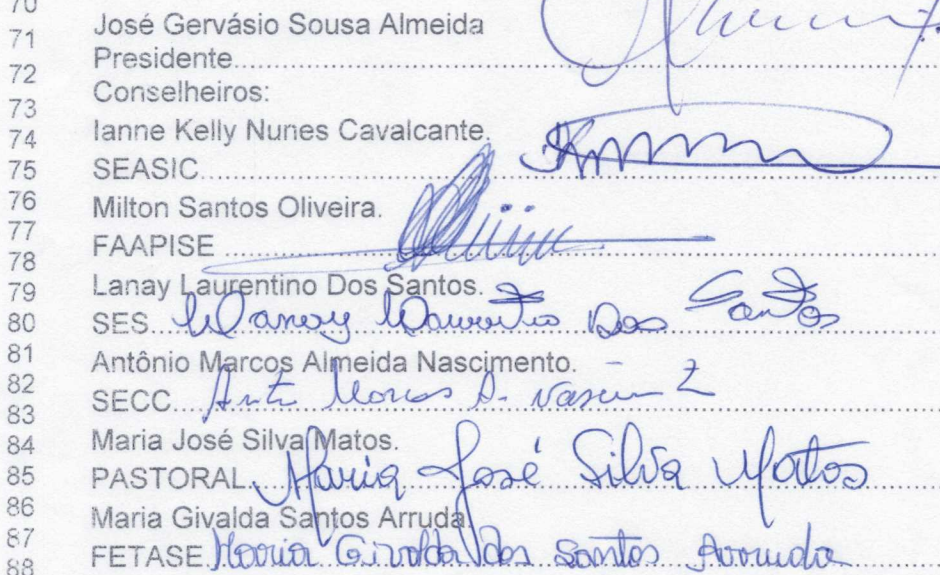 70
71 José Gervásio Sousa Almeida
72 Presidente
73 Conselheiros:
74 Ianne Kelly Nunes Cavalcante.
75 SEASIC
76 Milton Santos Oliveira.
77 FAAPISE
78
79 Lanay Laurentino Dos Santos.
80 SES Lanay Laurentino Dos Santos
81 Antônio Marcos Almeida Nascimento.
82 SECC
83
84 Maria José Silva Matos.
85 PASTORAL Maria José Silva Matos
86 Maria Givalda Santos Arruda.
87 FETASE Maria Givalda dos Santos Arruda
88